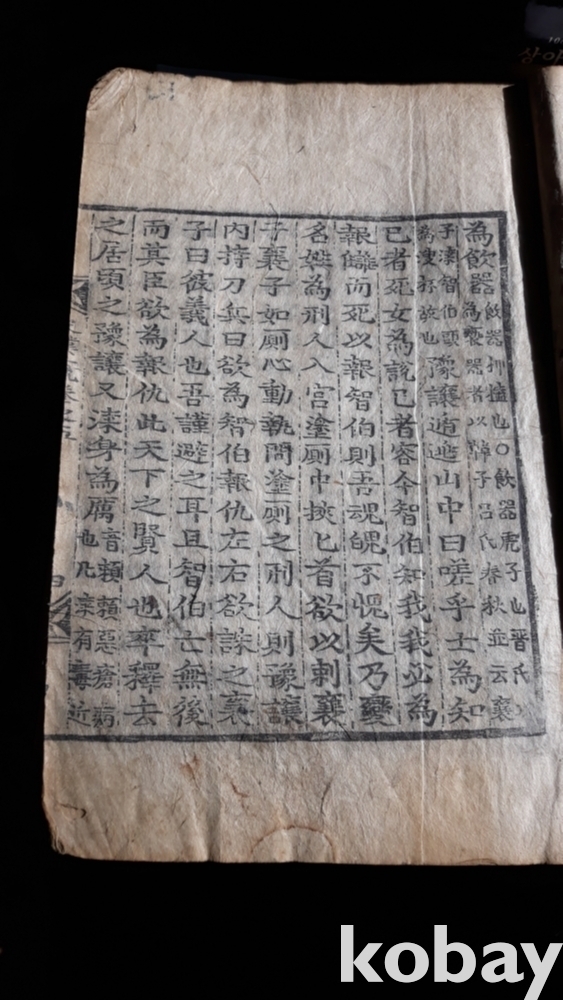 為飲器飲器押榼也○飲器虎子也晋氏
為褻器者以韓子呂氏春秋並云襄
子漆智伯頭
為溲杯故也豫讓遁逃山中曰嗟乎士為知
己者死女為說己者容今智伯知我我必為
報讎而死以報智伯則吾魂魄不愧矣乃變
名姓為刑人入宮塗厠中挾匕首欲以刺襄
子襄子如厠心動執問塗厠之刑人則豫讓
內持刀兵曰欲為智伯報仇左右欲誅之襄
子曰彼義人也吾謹避之耳且智伯亡無後
而其臣欲為報仇此天下之賢人也卒釋去
之居頃之豫讓又漆身為厲音賴賴惡瘡病
也凡漆有毒近
卷之五
상이
kobay